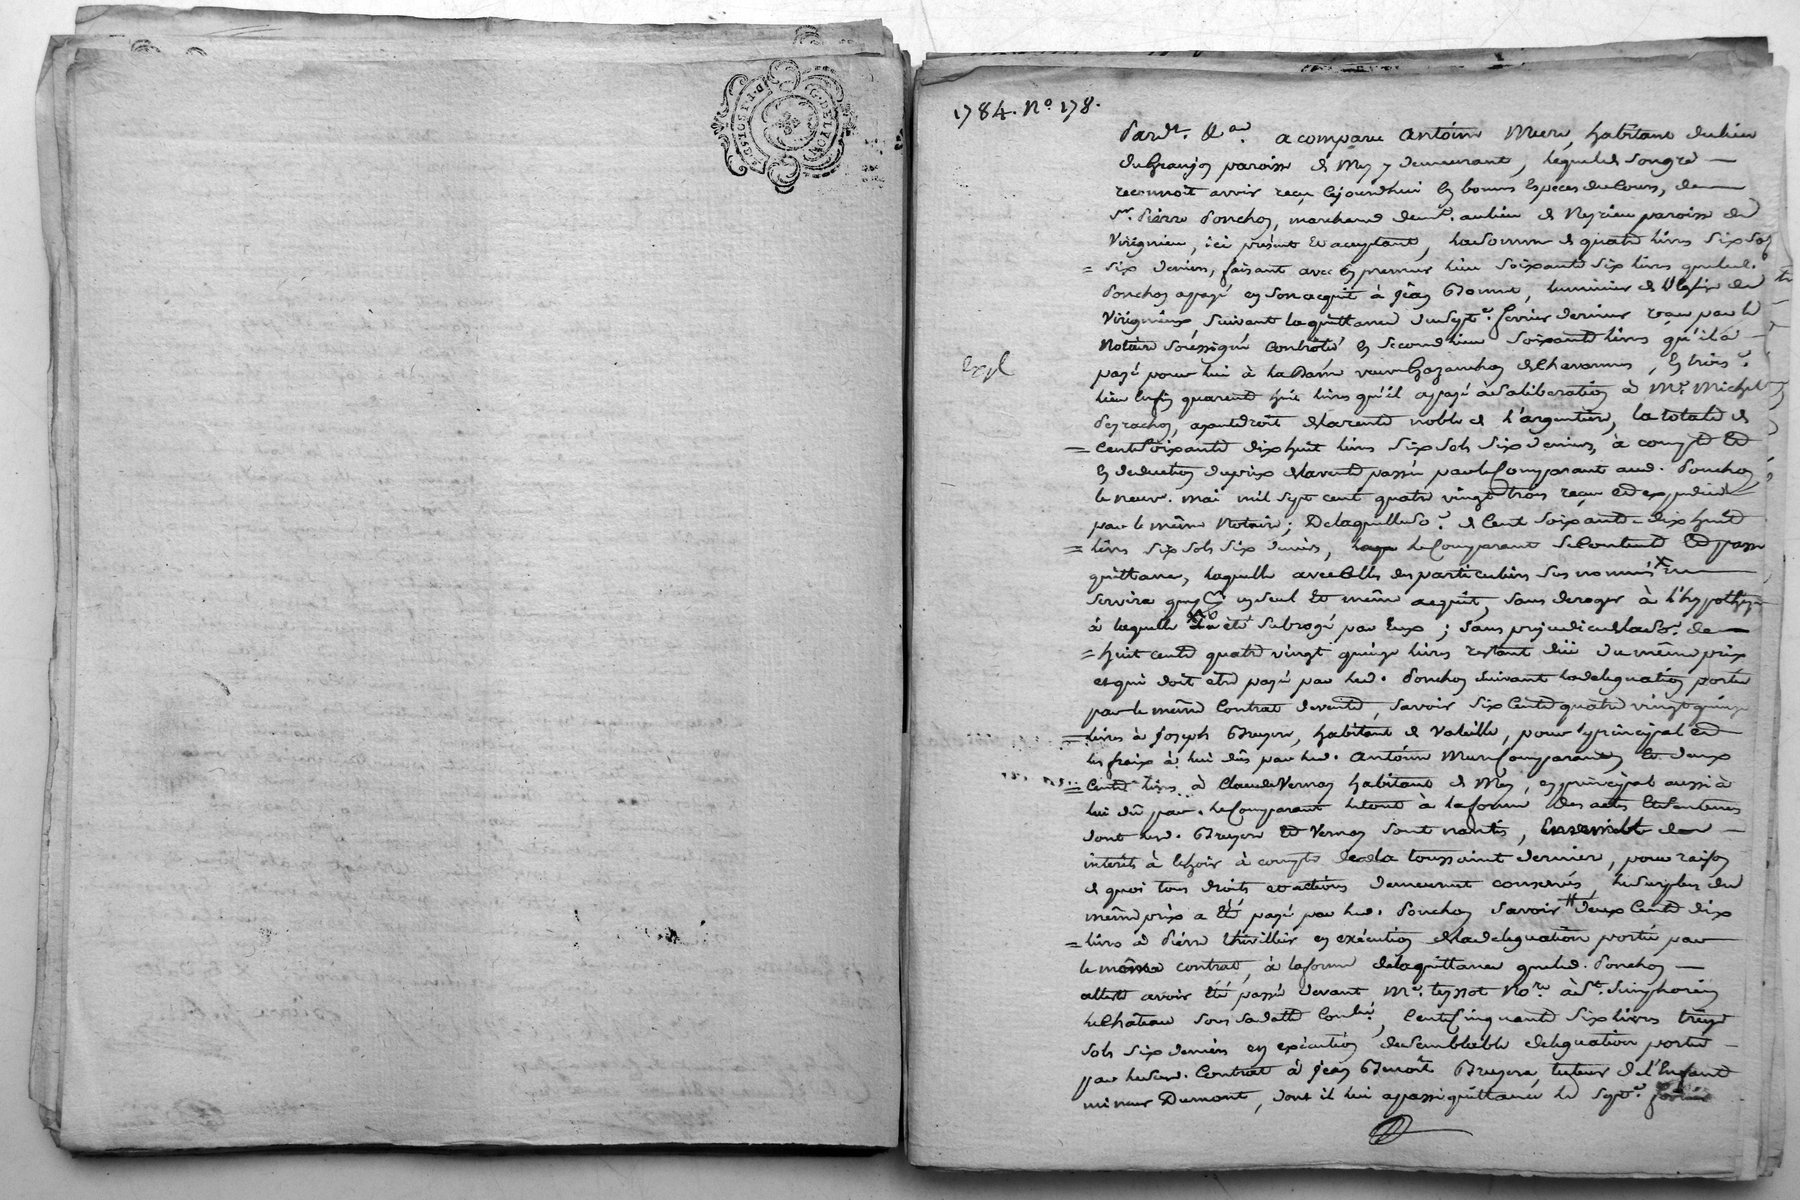 G. DE LYON
1784. N.º 178.
Pard.t &a.u a comparu antoine Mure, habitant du lieu
du Granjon paroisse de Mey y demeurant, lequel de son gré
reconnoit avoir reçu cejourdhui en bonnes Especes du Cours, de
Sr. Pierre Ponchon, marchand demt. au lieu de Neyrieu paroisse de
Virignieu, ici présent et acceptant, la somme de quatre livres six sols
= six deniers, faisant avec en premier lieu soixante six livres que led.
Ponchon a payé en son acquit à Jean Bonnet, luminier de l'Eglise de
Virignieux, suivant la quittance du sept.e fevrier dernier reçue par le
Notaire soussigné Contrôlé en second lieu soixante livres qu'il a
Expl
payé pour lui à la Dame veuve Gazanchon de Chavannes, en trois.e
lieu Enfin quarente huit livres qu'il a payé à sa liberation à Me. Michel
Peyrachon, ayant droit de la rente noble de l'argentiere, la totale de
= Cent soixante dix huit livres six sols six deniers, à compte Et
En deduction du prix de la vente passée par le Comparant aud. Ponchon
le neuv. mai mil sept cent quatre vingt trois reçue et expediée
par le même Notaire; De laquelle so.e de Cent soixante-dix huit
= livres six sols six deniers, le Comparant se Contente Et passe
quittance, laquelle avec Celle des particuliers sus nommés x ne
servira que d'un seul Et même acquit, sans deroger à l'hypotheque
à laquelle il a été subrogé par Eux; sans prejudice de la so.e de
= huit cent quatre vingt quinze livres restant dûë du même prix
et qui doit être payé par led. Ponchon suivant la delegation portée
par le même Contrat de vente, savoir six Cent quatre vingt quinze
= livres à Joseph Bruyere, habitant de Valeille, pour le principal et
les fraix à lui dûs par led. antoine Mure Comparant Et deux
= Cent livres à Claude Vernay habitant de Mey, en principal aussi à
lui dû par le Comparant le tout à la forme des actes Et Sentences
dont led. Bruyere Et Vernay sont nantis, Ensemble de
interêts à Echoir à compte de la toussaint dernier, pour raison
de quoi tous droits et actions demeurent conservés, le surplus du
même prix a été payé par led. Ponchon savoir # deux Cent dix
= livres à Pierre Thivillier en exécution de la delegation portée par
le même contrat, à la forme de la quittance que led. Ponchon
atteste avoir Eté passée devant Me. teyssot No.re à St. Simphorien
le Château sous sa datte Contrlé., Cent Cinquante six livres treize
sols six deniers en exécution de semblable delegation portée
par led. Contrat à Jean Benoît Bruyere, tuteur de l'Enfant
mineur Dumont, dont il lui a passé quittance le sept.e fevrier